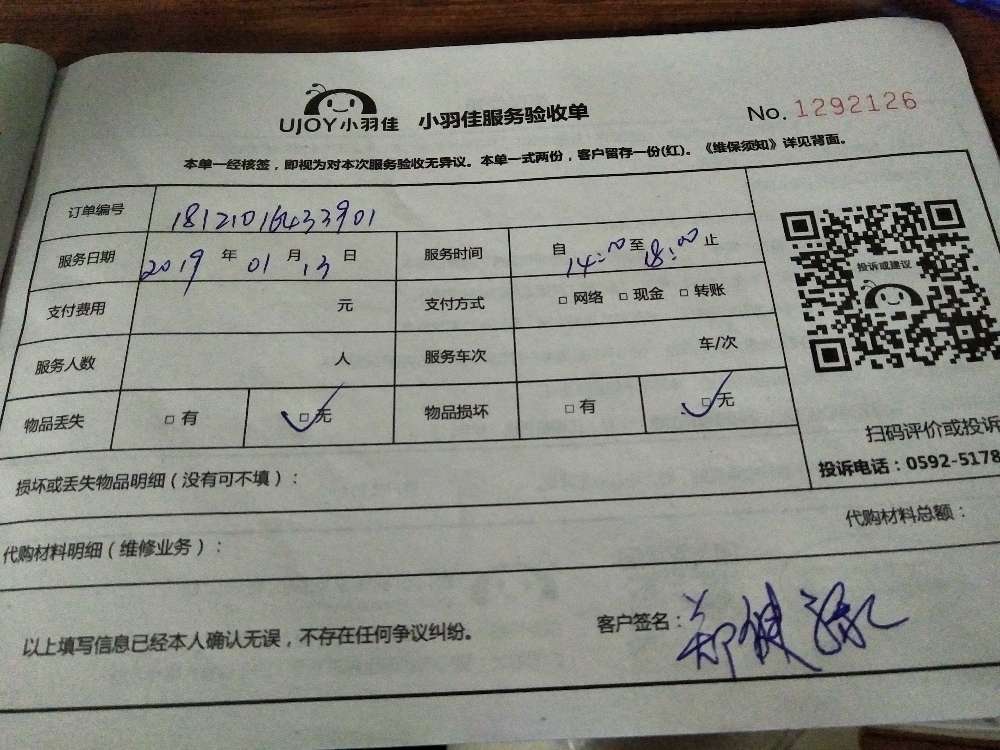 UJOY小羽佳 小羽佳服务验收单 No. 1292126
本单一经核签，即视为对本次服务验收无异议。本单一式两份，客户留存一份(红)。《维保须知》详见背面。
订单编号 18121016433901
服务日期 2019 年 01 月 13 日 服务时间 自 14:00 至 18:00 止
支付费用 元 支付方式 □ 网络 □ 现金 □ 转账
服务人数 人 服务车次 车/次
物品丢失 □ 有 □ 无 物品损坏 □ 有 □ 无
投诉或建议
扫码评价或投诉
投诉电话：0592-5178
损坏或丢失物品明细（没有可不填）：
代购材料明细（维修业务）： 代购材料总额：
以上填写信息已经本人确认无误，不存在任何争议纠纷。 客户签名：郑健